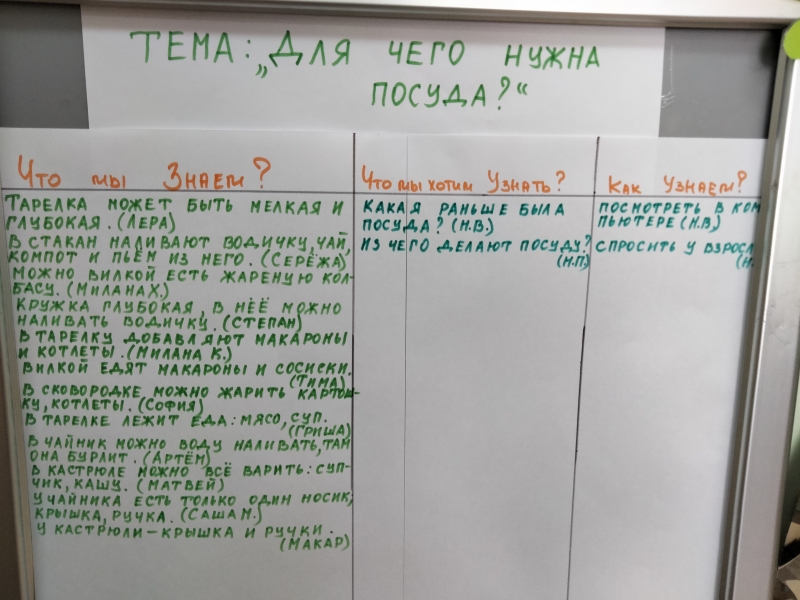 ТЕМА: „ДЛЯ ЧЕГО НУЖНА
ПОСУДА?“
Что мы Знаем?
ТАРЕЛКА МОЖЕТ БЫТЬ МЕЛКАЯ И
ГЛУБОКАЯ. (ЛЕРА)
В СТАКАН НАЛИВАЮТ ВОДИЧКУ, ЧАЙ,
КОМПОТ И ПЬЁМ ИЗ НЕГО. (СЕРЁЖА)
МОЖНО ВИЛКОЙ ЕСТЬ ЖАРЕНУЮ КОЛ-
БАСУ. (МИЛАНА Х.)
КРУЖКА ГЛУБОКАЯ, В НЕЁ МОЖНО
НАЛИВАТЬ ВОДИЧКУ. (СТЕПАН)
В ТАРЕЛКУ ДОБАВЛЯЮТ МАКАРОНЫ
И КОТЛЕТЫ. (МИЛАНА К.)
ВИЛКОЙ ЕДЯТ МАКАРОНЫ И СОСИСКИ.
(ТИМА)
В СКОВОРОДКЕ МОЖНО ЖАРИТЬ КАРТОШ-
КУ, КОТЛЕТЫ. (СОФИЯ)
В ТАРЕЛКЕ ЛЕЖИТ ЕДА: МЯСО, СУП.
(ГРИША)
В ЧАЙНИК МОЖНО ВОДУ НАЛИВАТЬ, ТАМ
ОНА БУРЛИТ. (АРТЁМ)
В КАСТРЮЛЕ МОЖНО ВСЁ ВАРИТЬ: СУП-
ЧИК, КАШУ. (МАТВЕЙ)
У ЧАЙНИКА ЕСТЬ ТОЛЬКО ОДИН НОСИК,
КРЫШКА, РУЧКА. (САША М.)
У КАСТРЮЛИ – КРЫШКА И РУЧКИ.
(МАКАР)
Что мы хотим Узнать?
КАКАЯ РАНЬШЕ БЫЛА
ПОСУДА? (Н.В.)
ИЗ ЧЕГО ДЕЛАЮТ ПОСУДУ?
(Н.П.)
Как Узнаем?
ПОСМОТРЕТЬ В КОМ
ПЬЮТЕРЕ (Н.В.)
СПРОСИТЬ У ВЗРОСЛ
(Н.